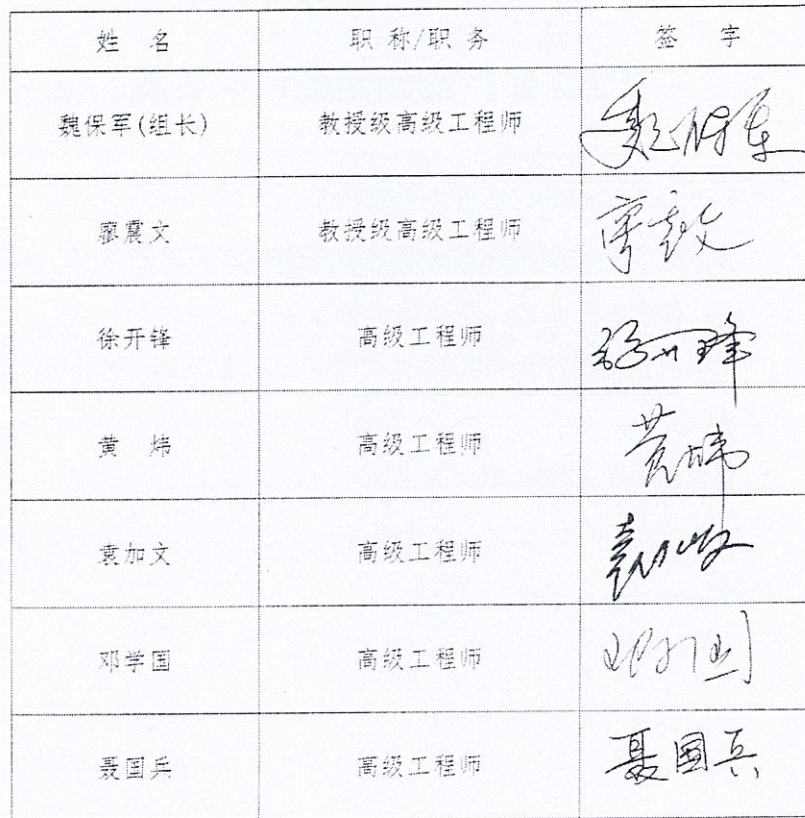 姓 名 职 称/职 务 签 字
魏保军(组长) 教授级高级工程师 魏保军
廖震文 教授级高级工程师 廖震文
徐开锋 高级工程师 徐开锋
黄 炜 高级工程师 黄炜
袁加文 高级工程师 袁加文
邓学国 高级工程师 邓学国
聂国兵 高级工程师 聂国兵